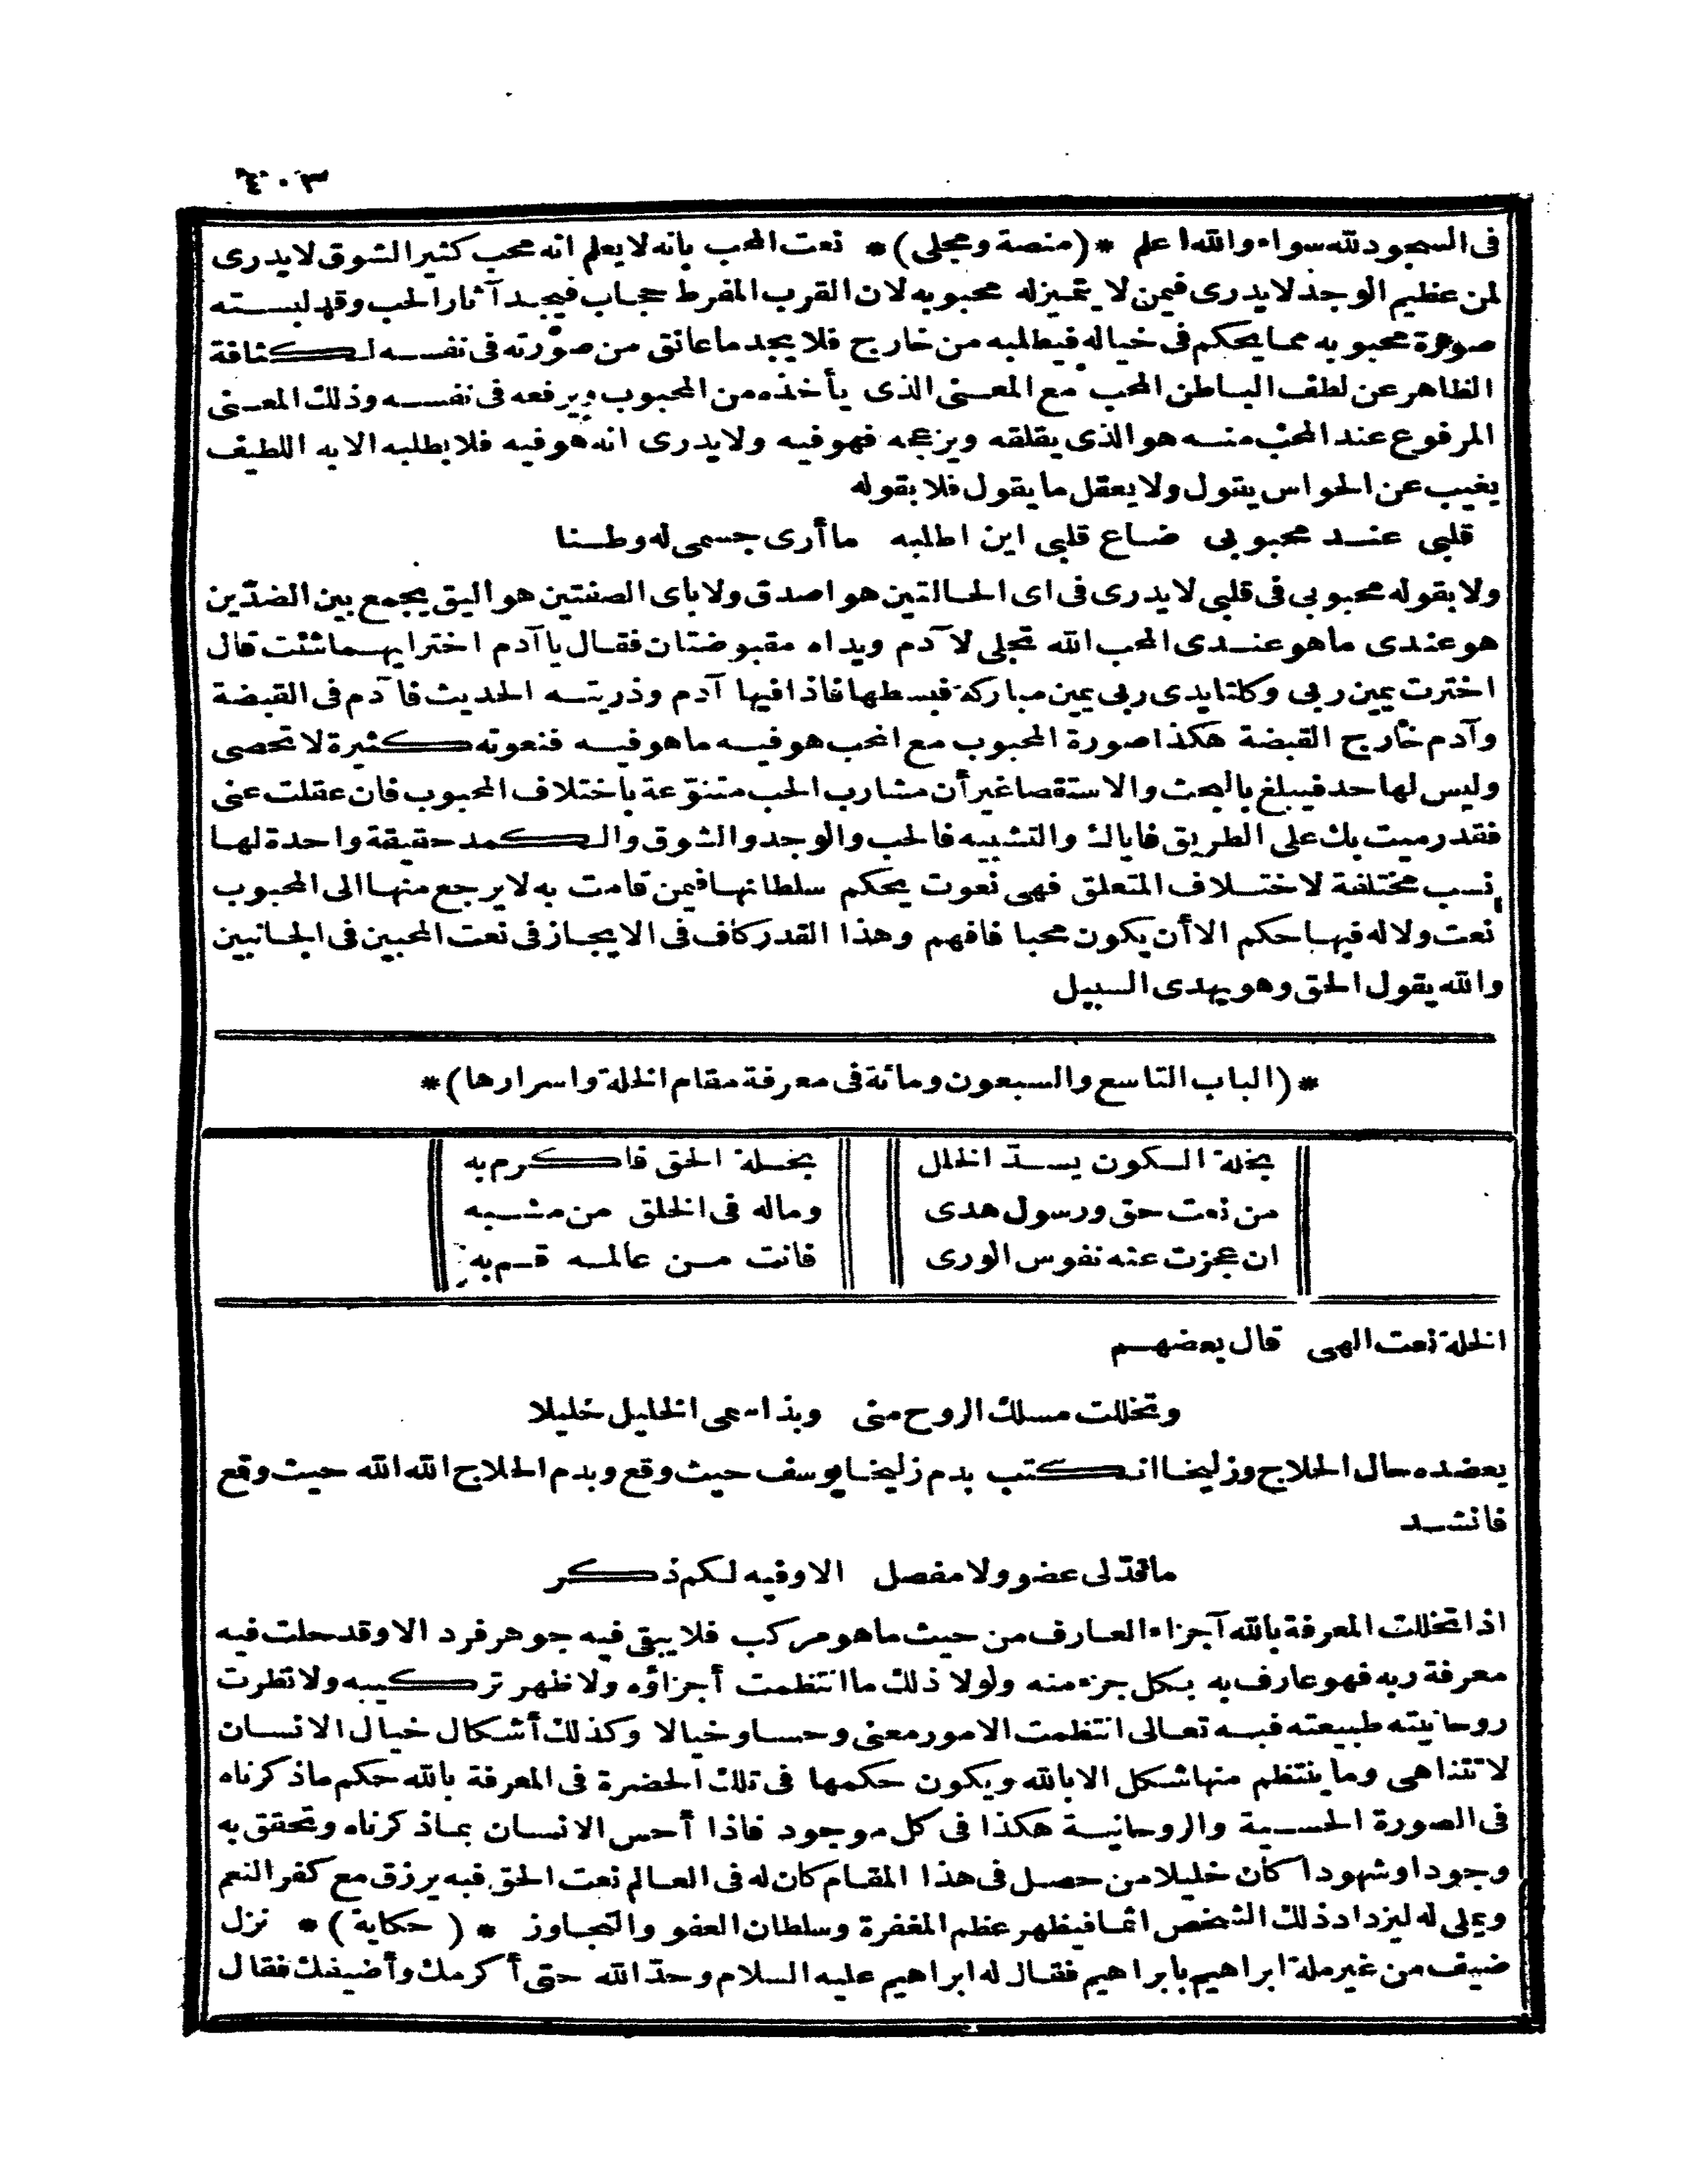 ٤٠٣
فى السجود لله سواء والله اعلم * (منصة ومجلى) * نعت المحب بانه لا يعلم انه محب كثير الشوق لا يدرى
لمن عظيم الوجد لا يدرى فيمن لا يتميز له محبوبه لان القرب المفرط حجاب فيجد آثار الحب وقد لبسته
صورة محبوبه مما يحكم فى خياله فيطلبه من خارج فلا يجد ما عانق من صورته فى نفسه لكثافة
الظاهر عن لطف الباطن المحب مع المعنى الذى يأخذه من المحبوب ويرفعه فى نفسه وذلك المعنى
المرفوع عند المحب منه هو الذى يقلقه ويزعجه فهو فيه ولا يدرى انه هو فيه فلا يطلبه الا به اللطيف
يغيب عن الحواس يقول ولا يعقل ما يقول فلا بقوله
قلبى عند محبوبى ضاع قلبى اين اطلبه ما أرى جسمى له وطنا
ولا بقوله محبوبى فى قلبى لا يدرى فى اى الحالتين هو اصدق ولا باى الصفتين هو اليق يجمع بين الضدّين
هو عندى ما هو عندى المحب الله تجلى لآدم ويداه مقبوضتان فقال يا آدم اختر ايهما شئت قال
اخترت يمين ربى وكلتا يدى ربى يمين مباركة فبسطها فاذا فيها آدم وذريته الحديث فآدم فى القبضة
وآدم خارج القبضة هكذا صورة المحبوب مع المحب هو فيه ما هو فيه فنعوته كثيرة لا تحصى
وليس لها حد فيبلغ بالبحث والاستقصا غير أن مشارب الحب متنوّعة باختلاف المحبوب فان عقلت عنى
فقد رميت بك على الطريق فاياك والتشبيه فالحب والوجد والشوق والكمد حقيقة واحدة لها
نسب مختلفة لاختلاف المتعلق فهى نعوت يحكم سلطانها فيمن قامت به لا يرجع منها الى المحبوب
نعت ولا له فيها حكم الا أن يكون محبا فافهم وهذا القدر كاف فى الايجاز فى نعت المحبين فى الجانبين
والله يقول الحق وهو يهدى السبيل
* (الباب التاسع والسبعون ومائة فى معرفة مقام الخلة واسرارها) *
بخلة الكون يسدّ الخلل بخلة الحق فاكرم به
من نعت حق ورسول هدى وماله فى الخلق من مشبه
ان عجزت عنه نفوس الورى فانت من عالمه قم به
الخلة نعت الهى قال بعضهم
وتخللت مسلك الروح منى وبذا سمى الخليل خليلا
يعضده حال الحلاج وزليخا انكتب بدم زليخا يوسف حيث وقع وبدم الحلاج الله الله حيث وقع
فانشد
ما قدّ لى عضو ولا مفصل الا وفيه لكم ذكر
اذا تخللت المعرفة بالله آجزاء العارف من حيث ما هو مركب فلا يبقى فيه جوهر فرد الا وقد حلت فيه
معرفة ربه فهو عارف به بكل جزء منه ولولا ذلك ما انتظمت أجزاؤه ولا ظهر تركيبه ولا نظرت
روحانيته طبيعته فبه تعالى انتظمت الامور معنى وحسا وخيالا وكذلك أشكال خيال الانسان
لا تتناهى وما ينتظم منها شكل الا بالله ويكون حكمها فى تلك الحضرة فى المعرفة بالله حكم ما ذكرناه
فى الصورة الحسية والروحانية هكذا فى كل موجود فاذا أحس الانسان بما ذكرناه وتحقق به
وجودا وشهودا كان خليلا من حصل فى هذا المقام كان له فى العالم نعت الحق فبه يرزق مع كفر النعم
ويملى له ليزداد ذلك الشخص اثما فيظهر عظم المغفرة وسلطان العفو والتجاوز * (حكاية) * نزل
ضيف من غير ملة ابراهيم بابراهيم فقال له ابراهيم عليه السلام وحدّ الله حتى أكرمك وأضيفك فقال